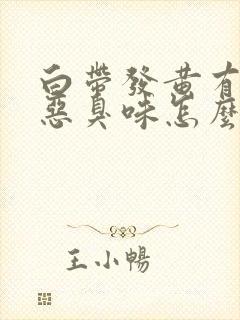 白帶發黃有
惡臭味怎麼
王小暢